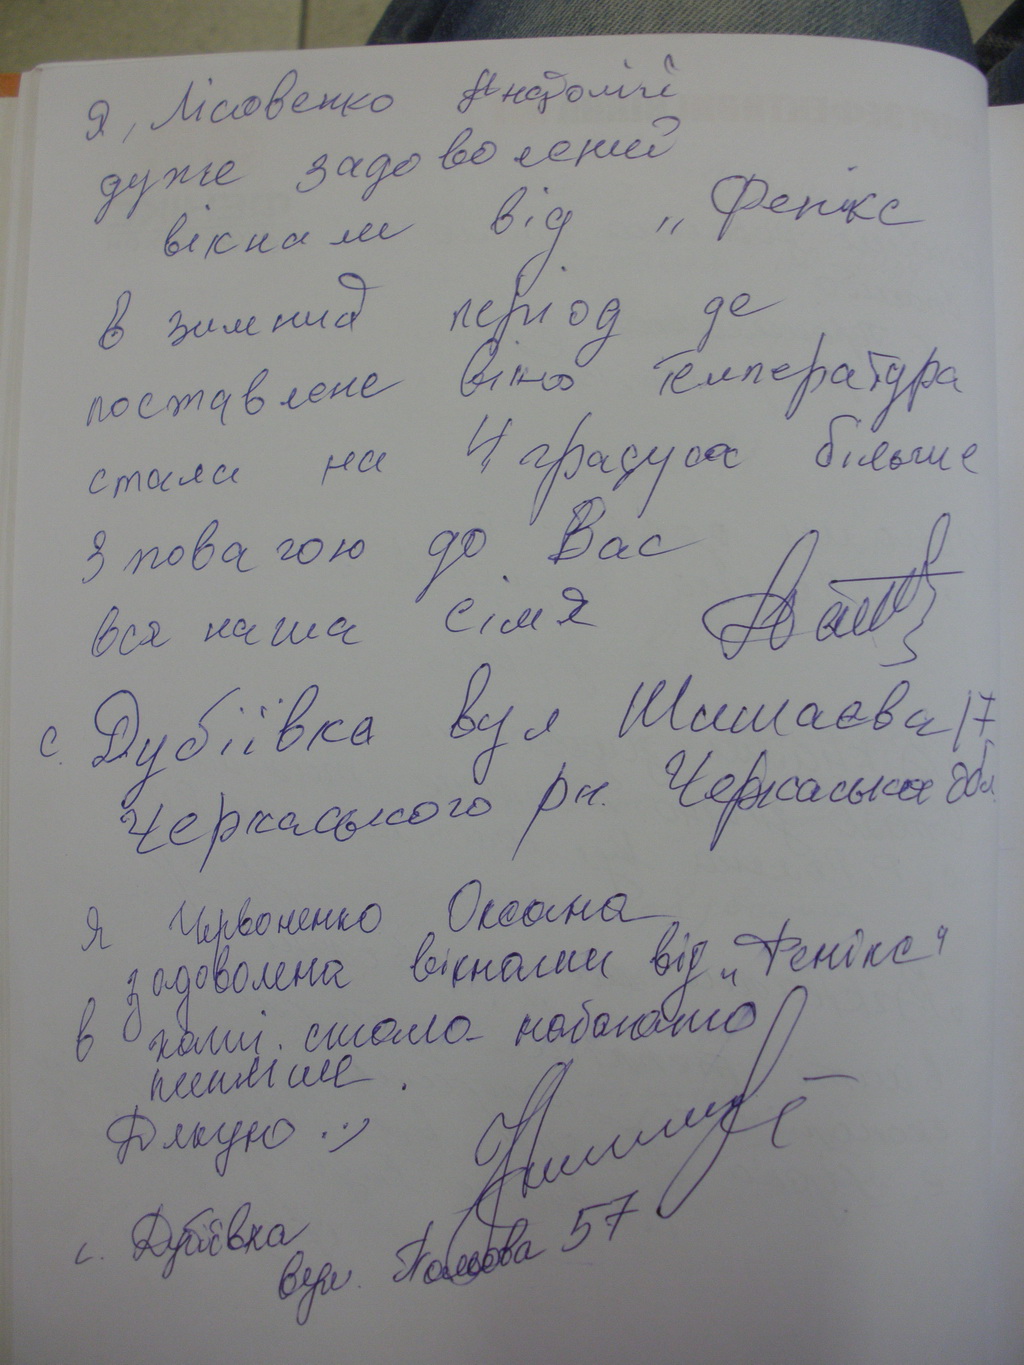 Я, Лісовенко Анатолій
дуже задоволений
вікнами від „Фенікс
в зимний період де
поставлене вікно температура
стала на 4 градуса більше
З повагою до Вас
вся наша сімя
с. Дубіївка вул 17
Черкаського рн. Черкаська обл.
Я Червоненко Оксана
задоволена вікнами від „Фенікс"
в хаті стало набагато
тепліше.
Дякую :)
с. Дубіївка
вул. 57